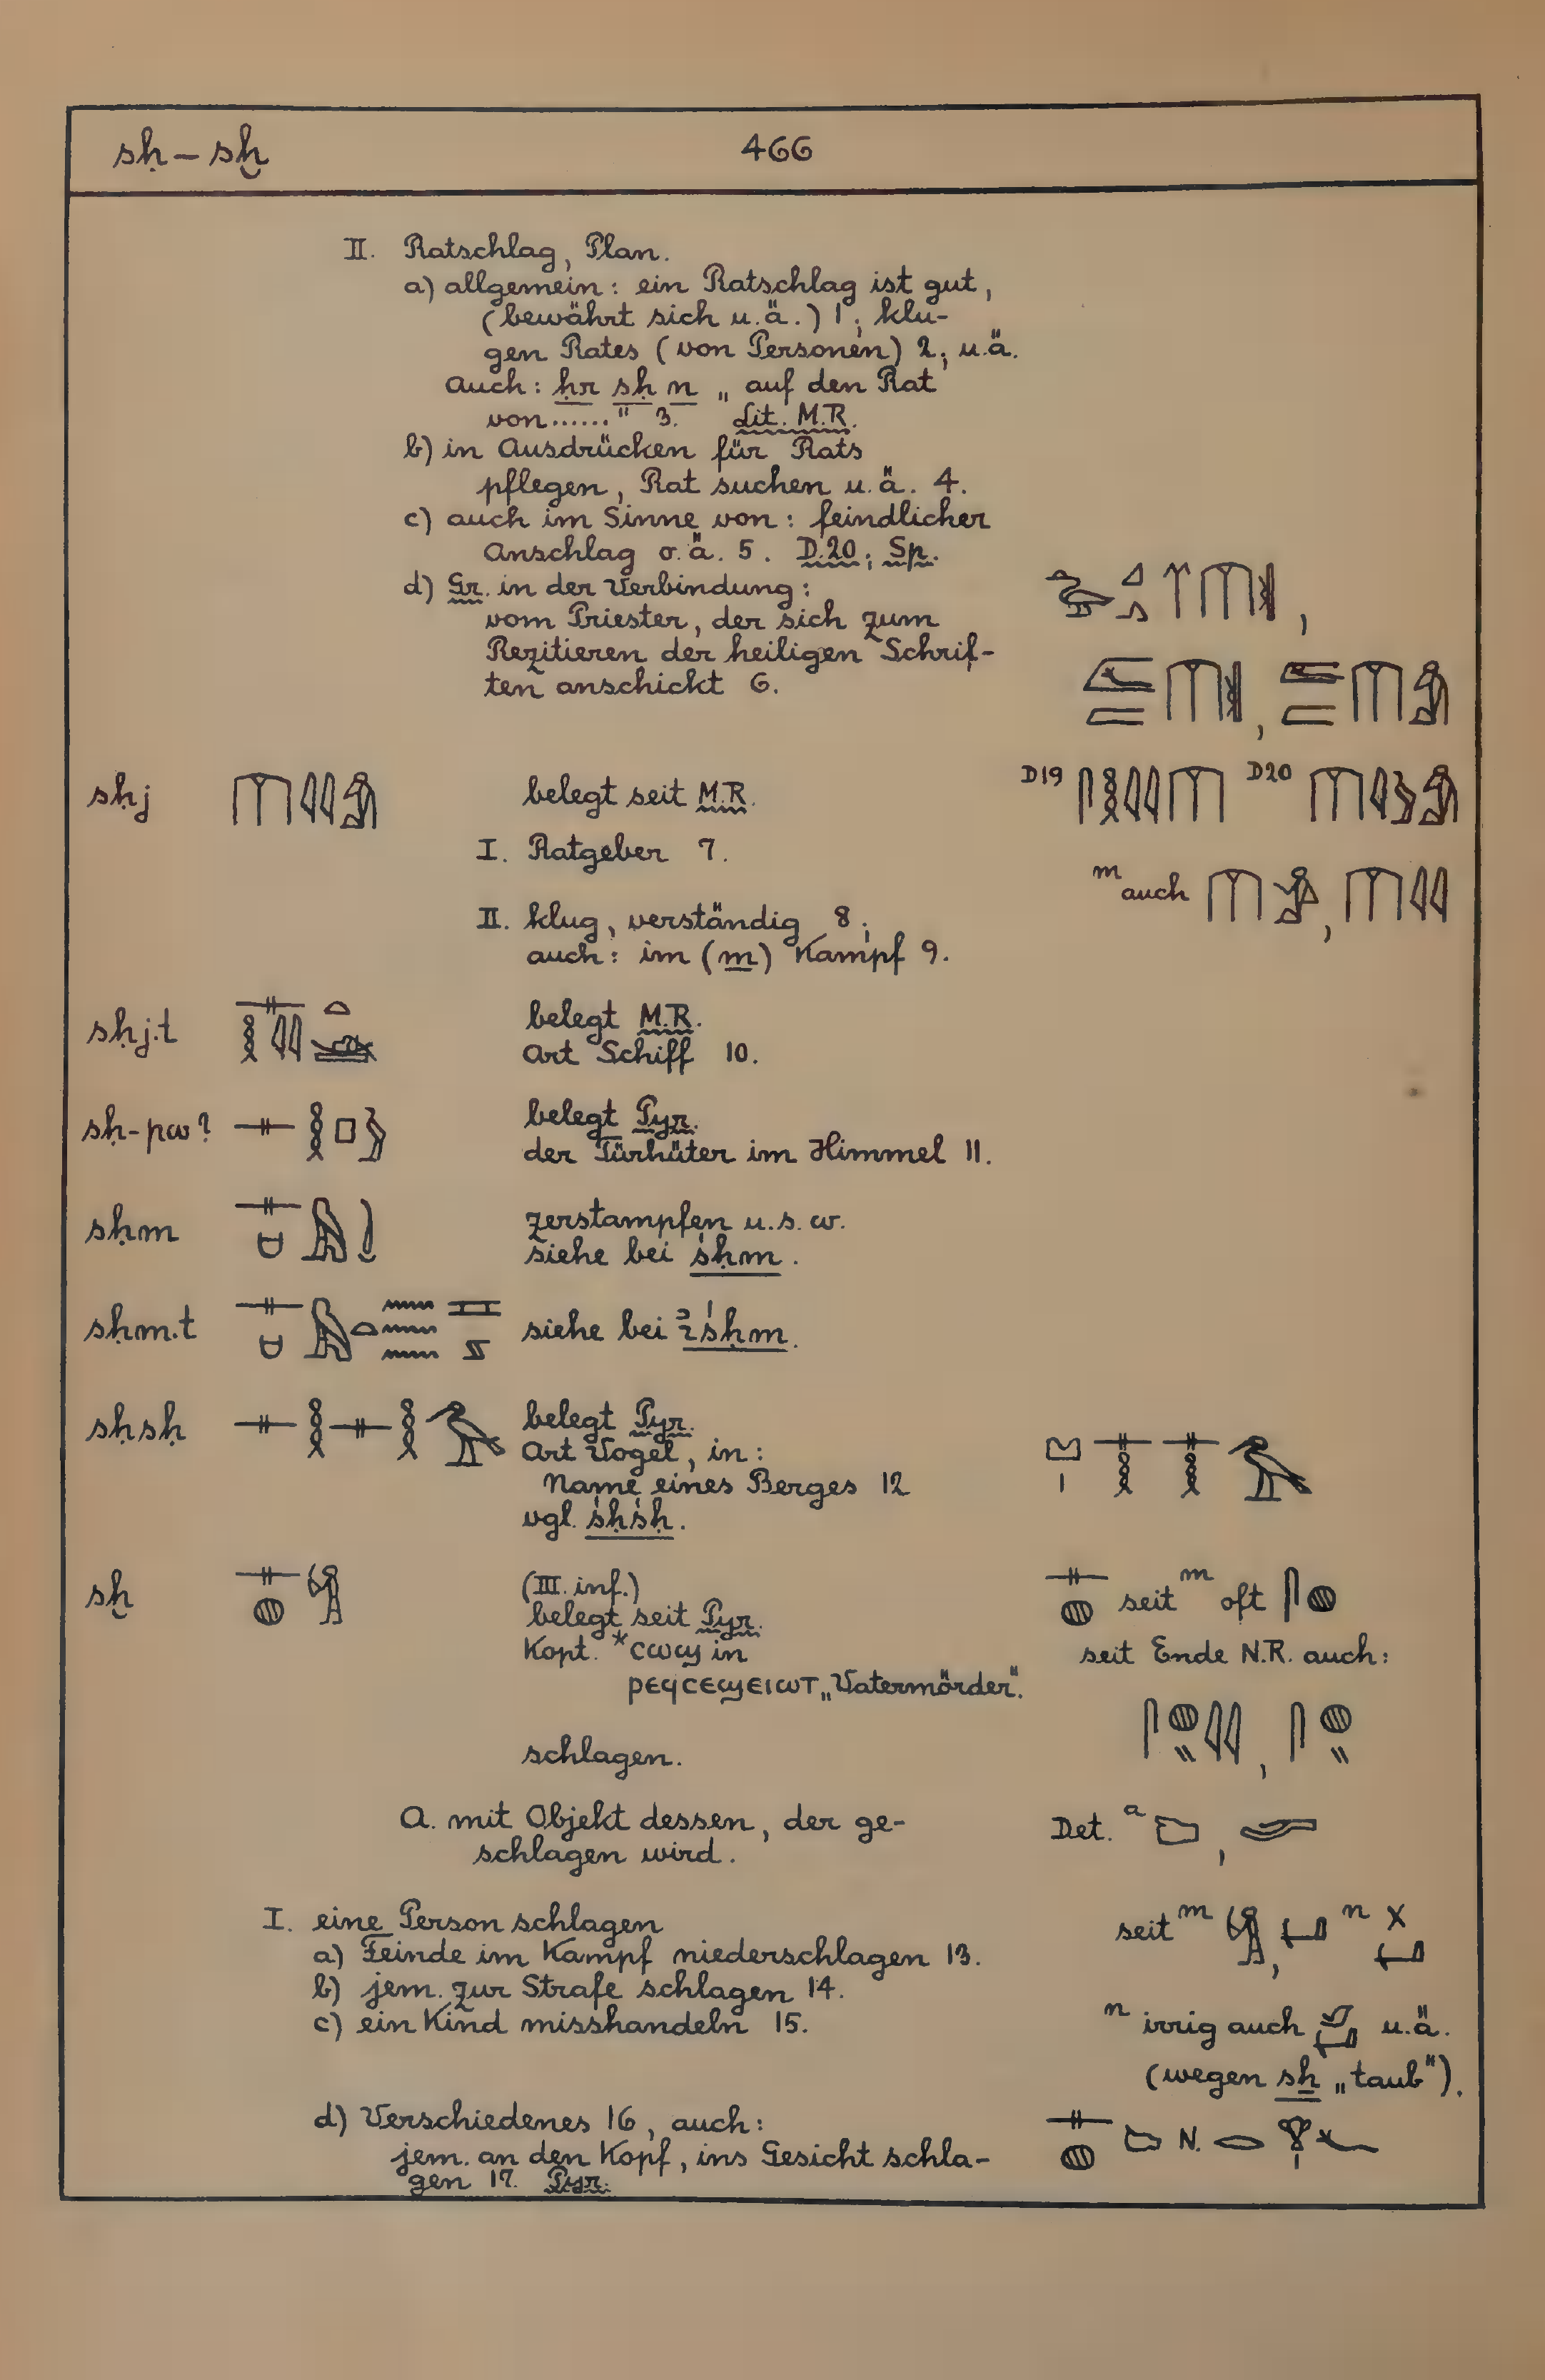 sḥ – sḫ 466
II. Ratschlag, Plan.
a) allgemein: ein Ratschlag ist gut,
(bewährt sich u.ä.) 1; klu-
gen Rates (von Personen) 2; u.ä.
Auch: ḥr sḥ n „auf den Rat
von......" 3. Lit. M.R.
b) in Ausdrücken für Rats
pflegen, Rat suchen u.ä. 4.
c) auch im Sinne von: feindlicher
Anschlag o.ä. 5. D.20; Sp.
d) Gr. in der Verbindung:
vom Priester, der sich zum
Rezitieren der heiligen Schrif-
ten anschickt 6.
sḥj belegt seit M.R. D19 D20
I. Ratgeber 7.
m auch
II. klug, verständig 8;
auch: im (m) Kampf 9.
sḥj.t belegt M.R.
Art Schiff 10.
sḥ-pw? belegt Pyr.
der Türhüter im Himmel 11.
sḥm zerstampfen u.s.w.
siehe bei śḥm.
sḥm.t siehe bei ꜣśḥm.
sḥsḥ belegt Pyr.
Art Vogel, in:
Name eines Berges 12
vgl. śḥśḥ.
sḫ (III. inf.) seit m oft
belegt seit Pyr.
Kopt. *ⲥⲱϣ in seit Ende N.R. auch:
ⲣⲉϥⲥⲉϣⲉⲓⲱⲧ „Vatermörder".
schlagen.
A. mit Objekt dessen, der ge- Det. a
schlagen wird.
I. eine Person schlagen seit m n
a) Feinde im Kampf niederschlagen 13.
b) jem. zur Strafe schlagen 14.
c) ein Kind misshandeln 15. n irrig auch u.ä.
(wegen sẖ „taub").
d) Verschiedenes 16, auch: N.
jem. an den Kopf, ins Gesicht schla-
gen 17. Pyr.